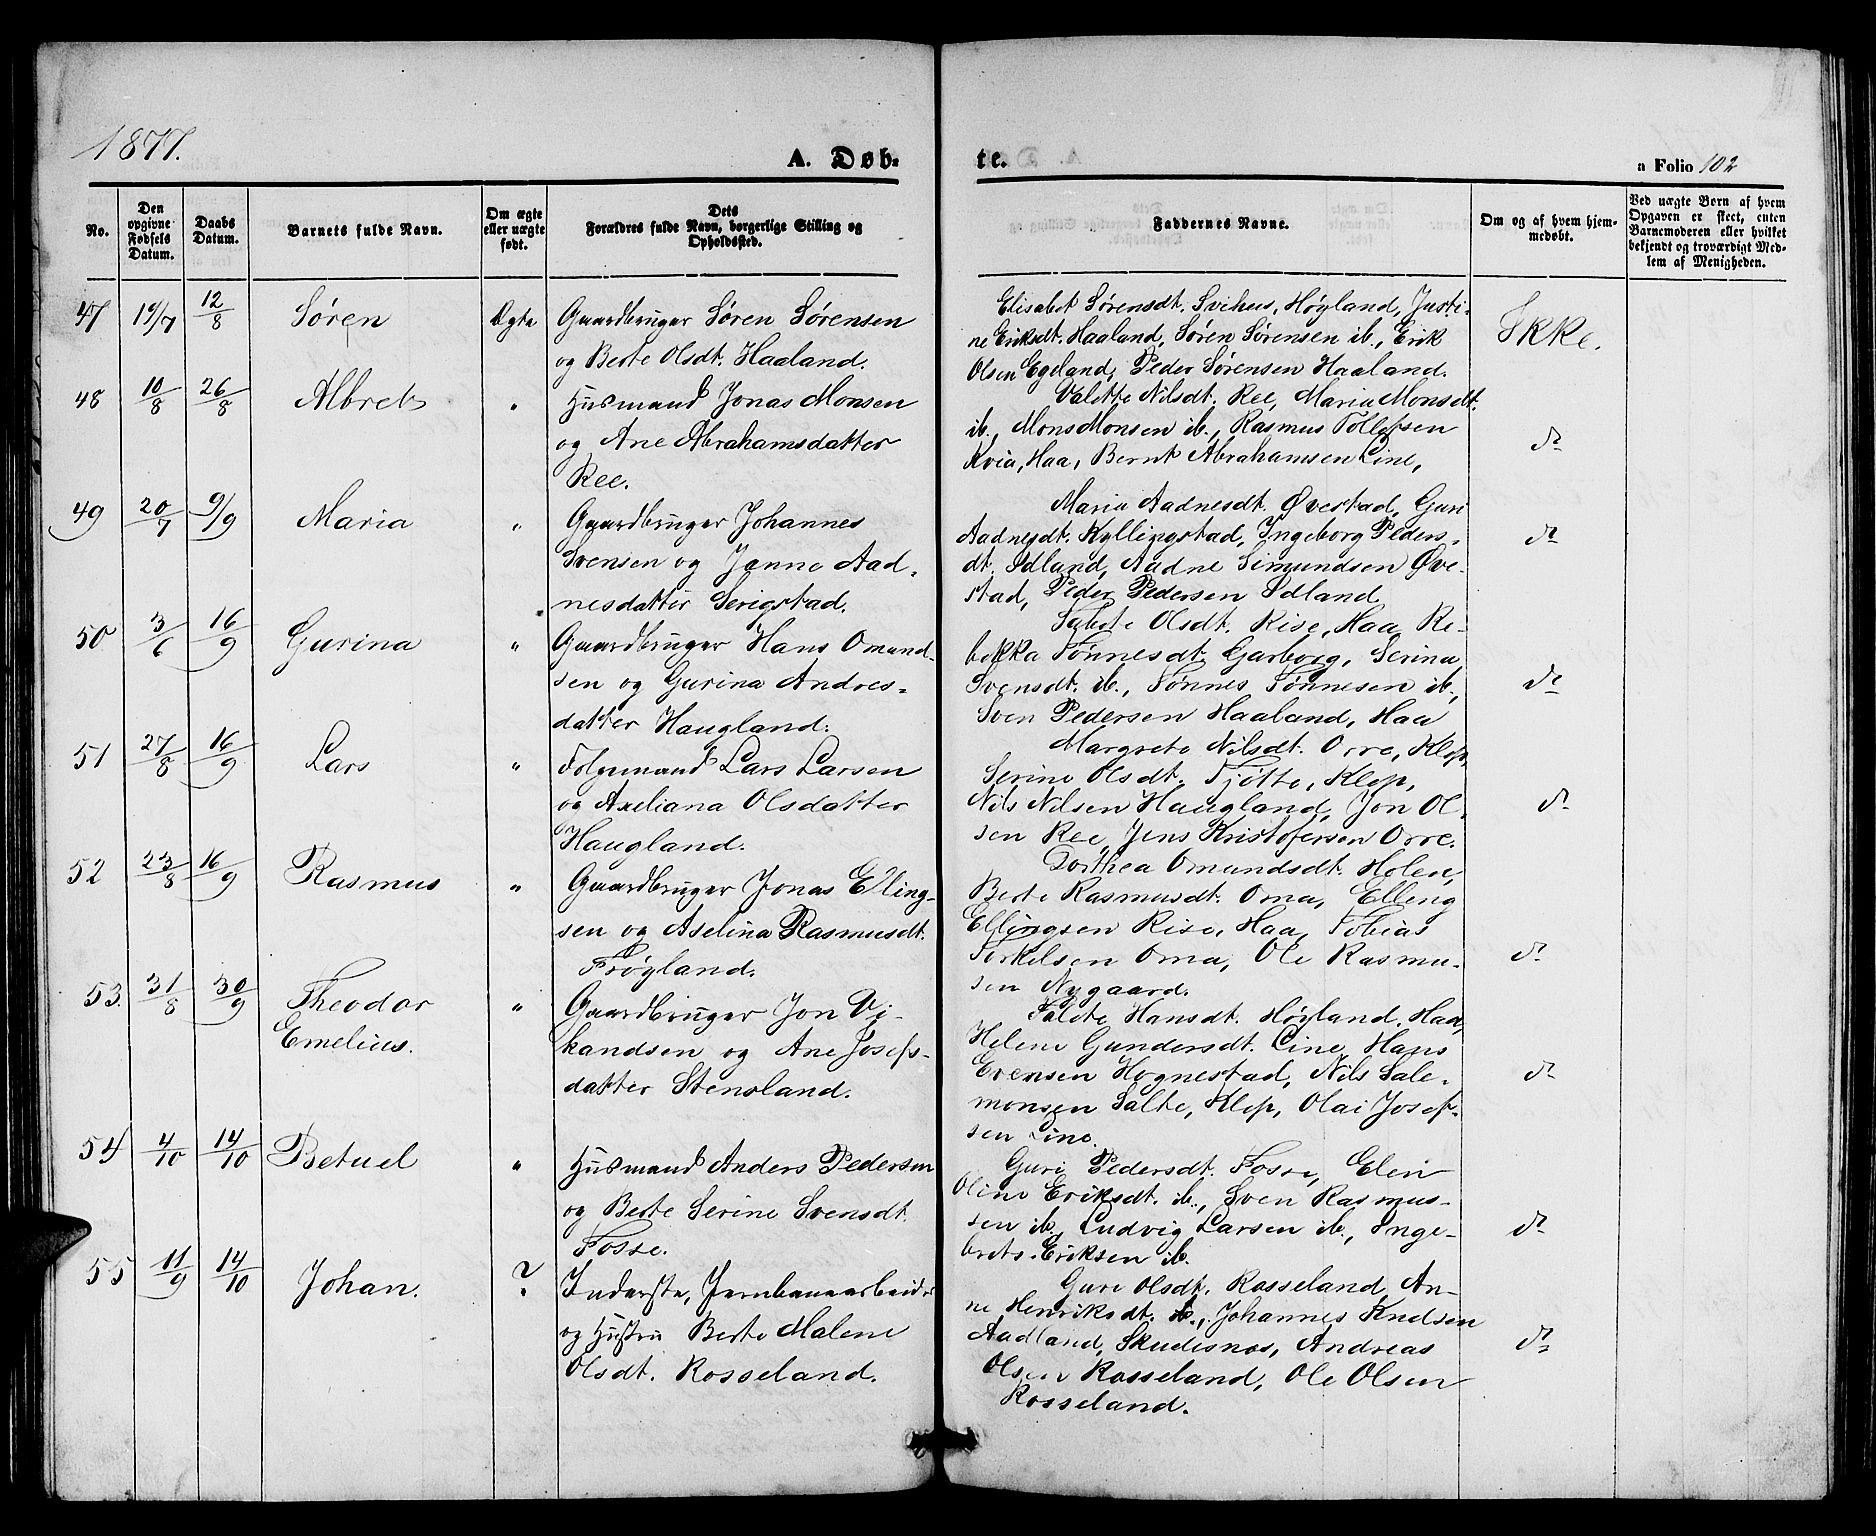 1877.
A. Døb-
te.
a Folio 102
No.
Den opgivne Fødsels Datum.
Daabs Datum.
Barnets fulde Navn.
Om ægte eller uægte født.
Dets Forældres fulde Navn, borgerlige Stilling og Opholdssted.
Faddernes Navne.
Om og af hvem hjem-
medøbt.
Ved uægte Børn af hvem
Opgaven er skeet, enten
Barnemoderen eller hvilket
bekjendt og troværdigt Med-
lem af Menigheden.
47 19/7 12/8 Søren Ægte Gaardbruger Søren Sørensen
og Berte Olsdt. Haaland.
Elisabet Sørensdt. Svihus, Høyland, Justi-
ne Eriksdt. Haaland, Søren Sørensen ib., Erik
Olsen Egeland, Peder Sørensen Haaland.
Ikke.
48 10/8 26/8 Albret " Husmand Jonas Monsen
og Ane Abrahamsdatter
Ree.
Valette Nilsdt. Ree, Maria Monsdt.
ib., Mons Monsen ib., Rasmus Tollefsen
Kvia, Haa, Bernt Abrahamsen Line,
do
49 20/7 9/9 Maria " Gaardbruger Johannes
Svensen og Janne Aad-
nesdatter Serigstad.
Maria Aadnesdt. Øvestad, Guri
Aadnesdt. Kyllingstad, Ingeborg Peders-
dt. Idland, Aadne Simundsen Øve-
stad, Peder Pedersen Idland
do
50 3/6 16/9 Gurina " Gaardbruger Hans Omund-
sen og Gurina Andres-
datter Haugland.
Olsdt. Rise, Haa Re-
bekka Tønnesdt. Garborg, Serina
Svensdt. ib., Tønnes Tønnesen ib.,
Sven Pedersen Haaland, Haa
do
51 27/8 16/9 Lars " Folgemand Lars Larsen
og Axeliana Olsdatter
Haugland.
Margrete Nilsdt. Orre, Klep,
Serine Olsdt. Tjøtte, Klep,
Nils Nilsen Haugland, Jon Ol-
sen Ree, Jens Kristofersen Orre.
do
52 23/8 16/9 Rasmus " Gaardbruger Jonas Elling-
sen og Aselina Rasmusdt.
Frøyland.
Dorthea Omundsdt. Holen,
Berte Rasmusdt. Oma, Elleng
Ellingsen Rise, Haa, Tobias
Torkelsen Oma, Ole Rasmu-
sen Nygaard.
do
53. 31/8 30/9 Theodor
Emelius. " Gaardbruger Jon Vi-
kandsen og Ane Josefs-
datter Stensland.
Hansdt. Høyland, Haa,
Helene Gundersdt. Line, Hans
Evensen Hognestad, Nils Sale-
monsen Salte, Klep, Olai Josef-
sen Line.
do
54 4/10 14/10 Betuel " Husmand Anders Pedersen
og Berte Serine Svensdt.
Fosse.
Guri Pedersdt. Fosse, Elen
Oline Eriksdt. ib., Sven Rasmus-
sen ib., Ludvig Larsen ib., Inge-
brets Eriksen ib.
do
55 11/9 14/10 Johan. ? Inderste, Jernbanearbeider
og Hustru Berte Malene
Olsdt. Rosseland.
Guri Olsdt. Rosseland, An-
ne Henriksdt. ib., Johannes Knudsen
Aadland, Skudesnes, Andreas
Olsen Rosseland, Ole Olsen
Rosseland.
do